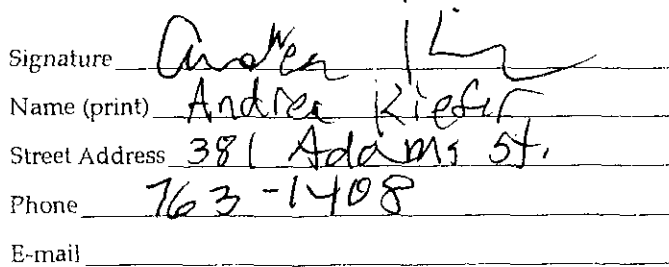 Signature Andrea K
Name (print) Andrea Kiefer
Street Address 381 Adams St.
Phone 763-1408
E-mail